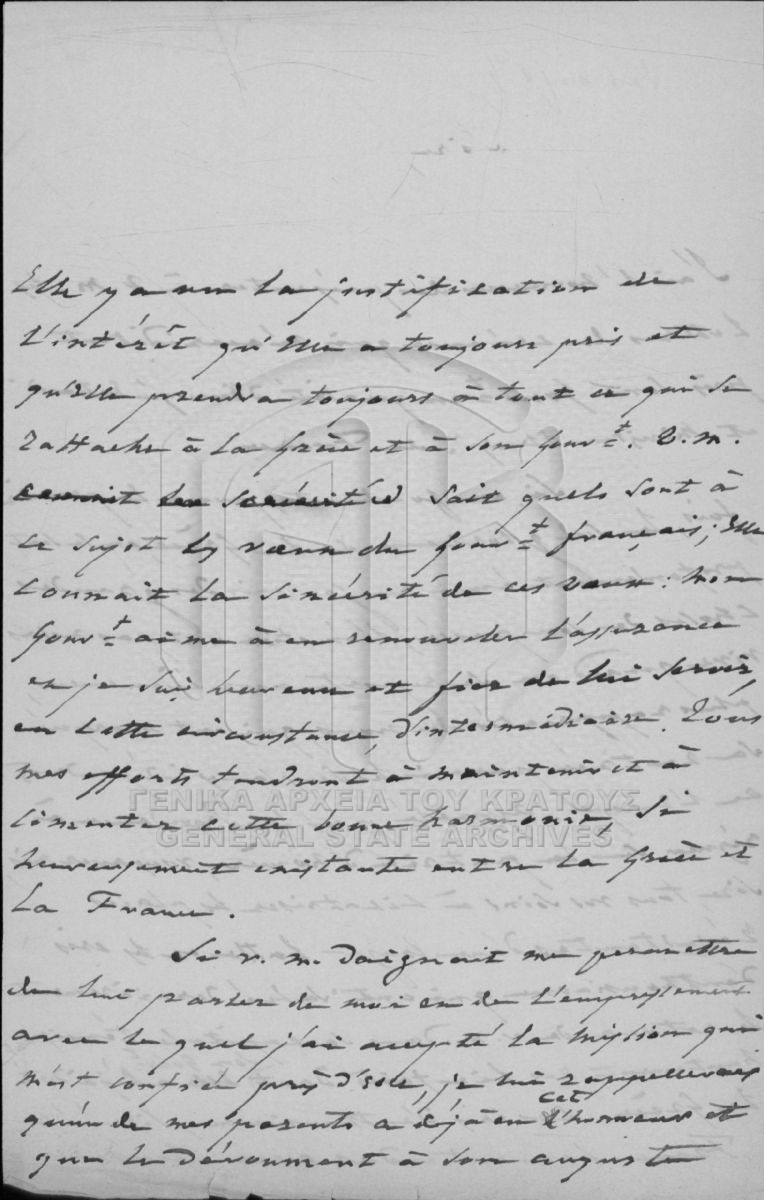 Elle y a vu la justification de
l'intérêt qu'Elle a toujours pris et
qu'Elle prendra toujours à tout ce qui se
rattache à la Grèce et à son Gouvt. V. M.
connait la sincérité Sait quels sont à
ce sujet les vœux du Gouvt français; Elle
connait la sincérité de ces vœux: mon
Gouvt aime à en renouveler l'assurance
et je suis heureux et fier de lui servir,
en cette circonstance, d'intermédiaire. Tous
mes efforts tendront à maintenir et à
cimenter cette bonne harmonie, si
heureusement existante entre la Grèce et
la France.
Si V. M. daignait me permettre
de lui parler de moi et de l'empressement
avec lequel j'ai accepté la mission qui
m'est confiée près d'Elle, je lui rappellerais
qu'un de mes parents a déjà eu cet honneur et
que le dévoument à son auguste
ΓΕΝΙΚΑ ΑΡΧΕΙΑ ΤΟΥ ΚΡΑΤΟΥΣ
GENERAL STATE ARCHIVES